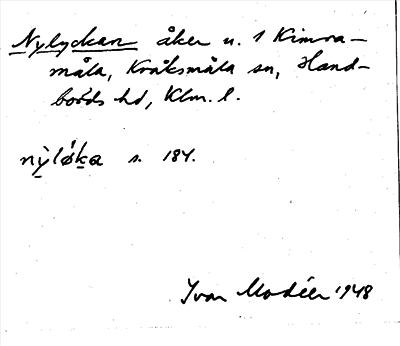 Nylyckan åker u. 1 Kimra-
måla, Kråksmåla sn, Hand-
börds hd, Klm. l.
nỳlø̀ka s. 184.
Ivar Modéer 1948